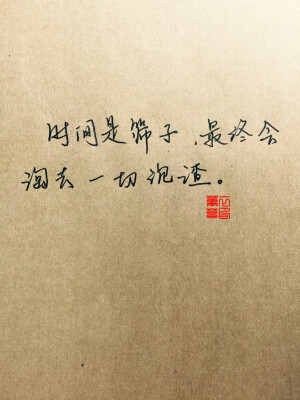 时间是筛子，最终会
淘去一切沉渣。